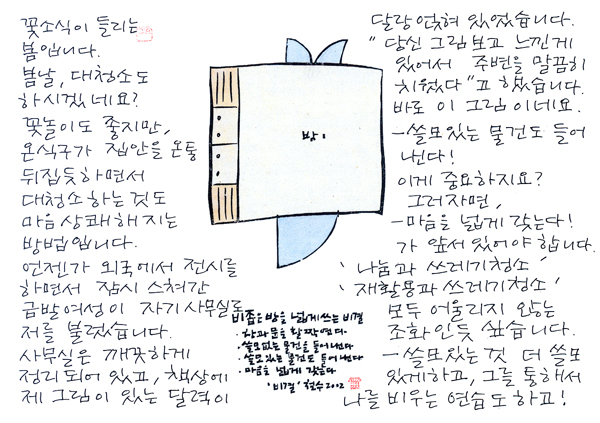 꽃소식이 들리는
봄입니다.
봄날, 대청소도
하시겠네요?
꽃놀이도 좋지만,
온식구가 집안을 온통
뒤집듯하면서
대청소하는것도
마음상쾌해지는
방법입니다.
언젠가 외국에서 전시를
하면서 잠시 스쳐간
금발여성이 자기사무실로
저를 불렀습니다.
사무실은 깨끗하게
정리되어 있고, 책상에
제 그림이 있는 달력이
방.
비좁은 방을 넓게 쓰는 비결
· 창과 문을 활짝 연다
· 쓸모없는 물건을 들어낸다
· 쓸모있는 물건도 들어낸다
· 마음을 넓게 갖는다
'비결' 철수2002
달랑 얹혀 있었습니다.
"당신 그림보고 느낀게
있어서 주변을 말끔히
치웠다"고 했습니다.
바로 이 그림이네요.
-쓸모있는 물건도 들어
낸다!
이게 중요하지요?
그러자면,
-마음을 넓게 갖는다!
가 앞서있어야 합니다.
'나눔과 쓰레기청소'
'재활용과 쓰레기청소'
모두 어울리지 않는
조화인듯 싶습니다.
-쓸모있는것 더 쓸모
있게하고, 그를 통해서
나를 비우는 연습도 하고!